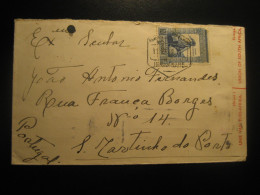 Ex Senhor
João Antonio Fernandes
Rua França Borges
Nº 14
S. Martinho do Porto
Portugal